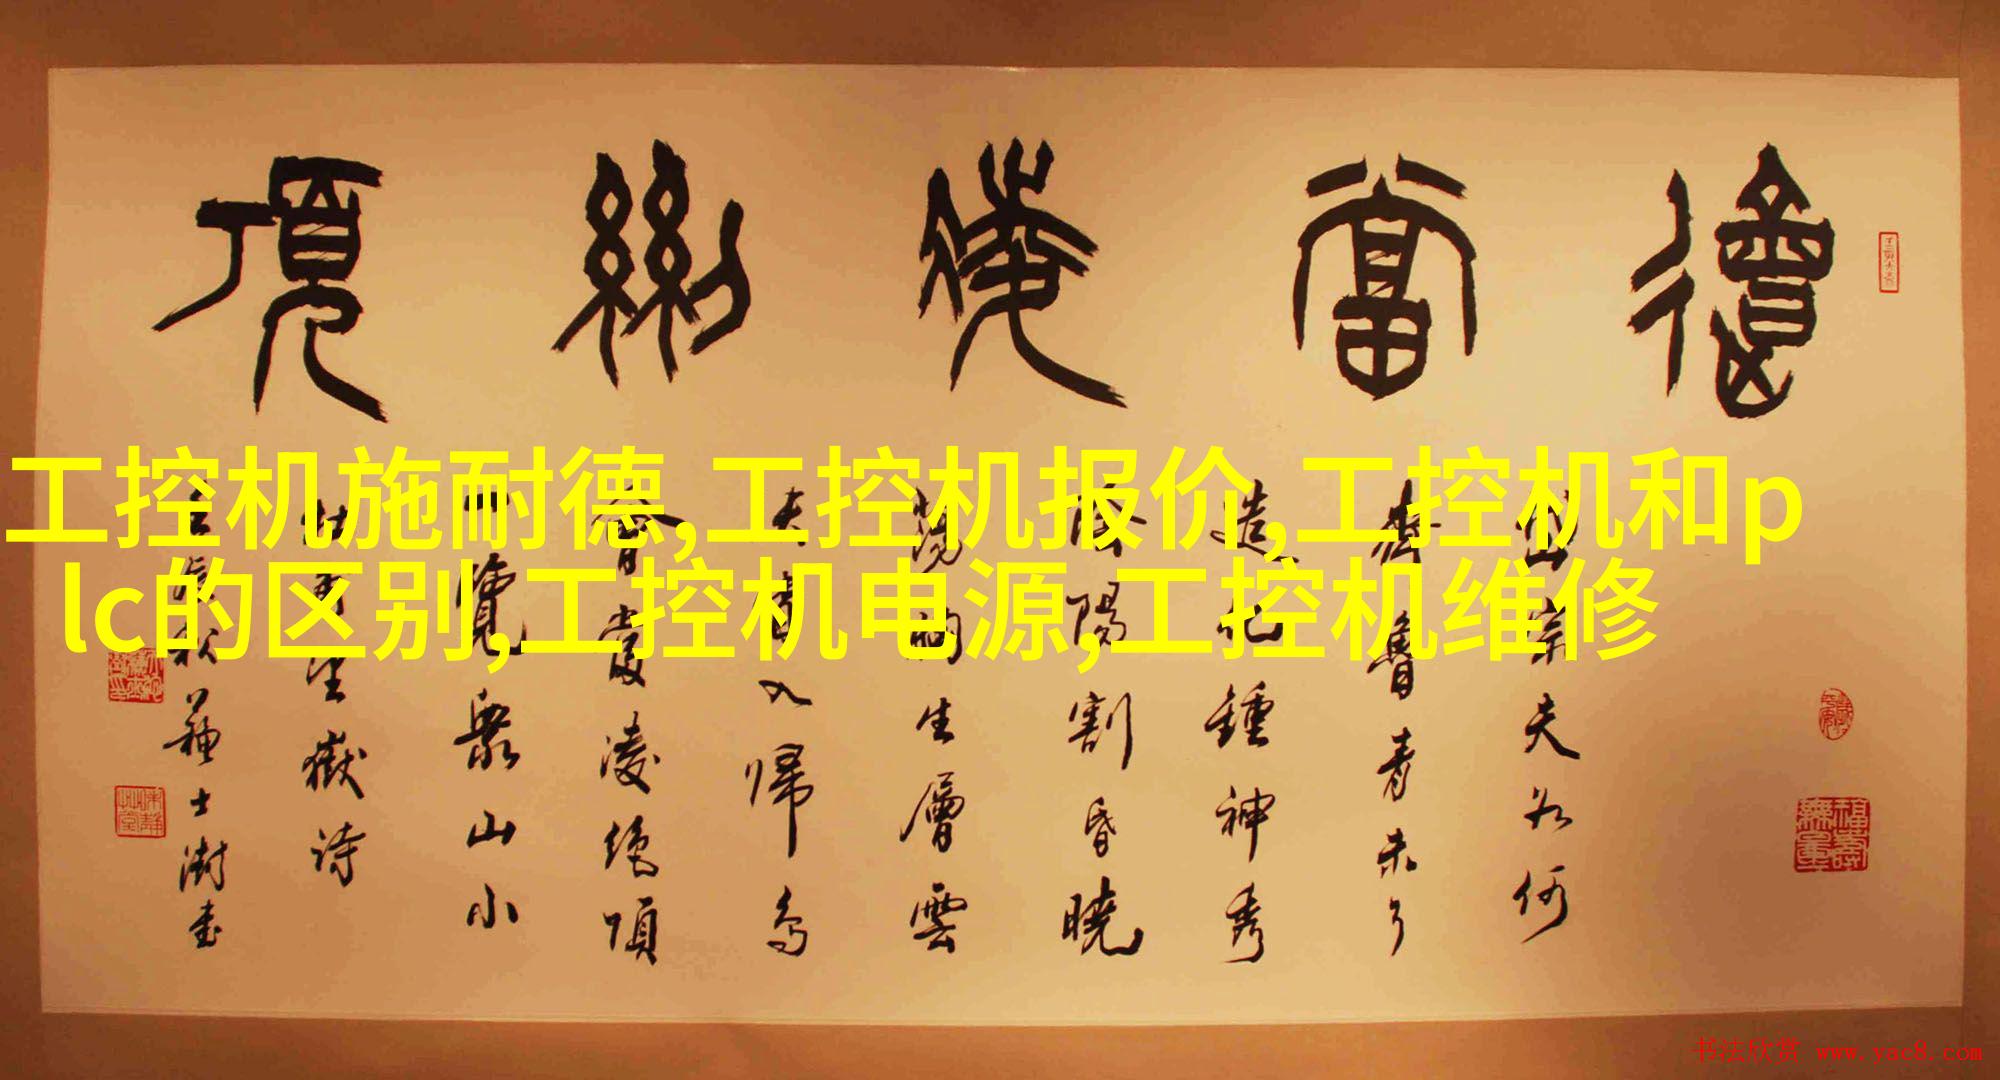 會當凌絕頂
岱宗夫如何
齊魯青未了
造化鍾神秀
陰陽割昏曉
蕩胸生層雲
决眥入歸鳥
會當凌絕頂
一覽衆山小
杜甫望嶽詩
壬辰秋蘇士澍書
福壽無量
工控机施耐德,工控机报价,工控机和p
lc的区别,工控机电源,工控机维修
书法欣赏 www.yac8.com